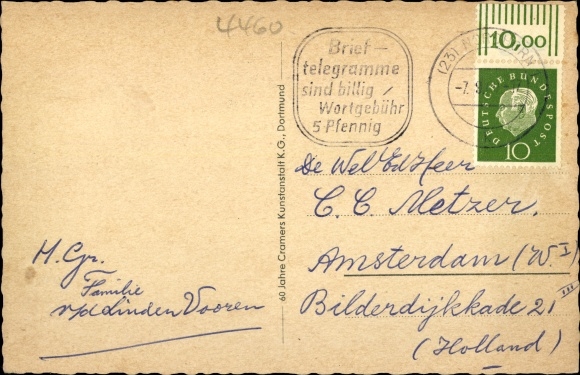 4460
Brief-
telegramme
sind billig
Wortgebühr
5 Pfennig
(23) NORDHORN
-7.
10,00
DEUTSCHE BUNDESPOST
10
60 Jahre Cramers Kunstanstalt K.G., Dortmund
De Wel Ed Heer
C. C. Metzer.
Amsterdam (W.I)
Bilderdijkkade 21 III
(Holland)
H. Gr.
Familie
v/d Linden Vooren